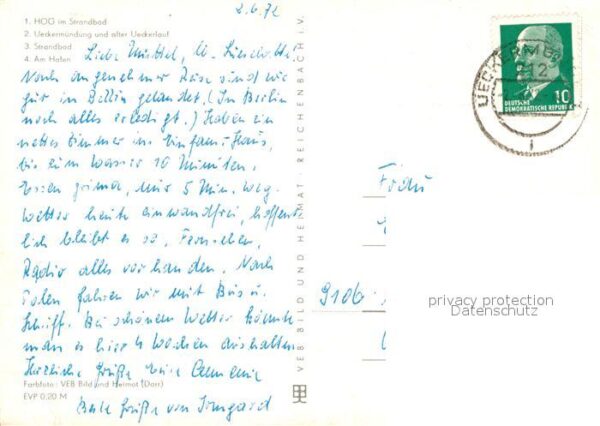 2.6.72
1. HOG im Strandbad
2. Ueckermündung und alter Ueckerlauf
3. Strandbad
4. Am Hafen
Liebe Muttel,
Nach angenehmer Reise sind wir
gut in Bellin gelandet. (In Berlin
noch alles erledigt.) Haben ein
nettes Zimmer im Einfam. Haus,
bis zum Wasser 10 Minuten.
Essen prima, nur 5 Min. weg.
Wetter heute einwandfrei, hoffent
lich bleibt es so. Fernsehen,
Radio alles vorhanden. Nach
Polen fahren wir mit Bus u.
Schiff. Bei schönem Wetter könnte
man es hier 4 Wochen aushalten
Herzliche Grüße Eure
Farbfoto: VEB Bild und Heimat (Dorr)
EVP 0,20 M
Beste Grüße von Irmgard
VEB BILD UND HEIMAT · REICHENBACH I. V.
UECKERMÜ
DEUTSCHE
DEMOKRATISCHE REPUBLIK
10
Frau
9106
privacy protection
Datenschutz